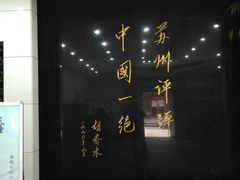 苏州评弹
中國一绝
胡乔木